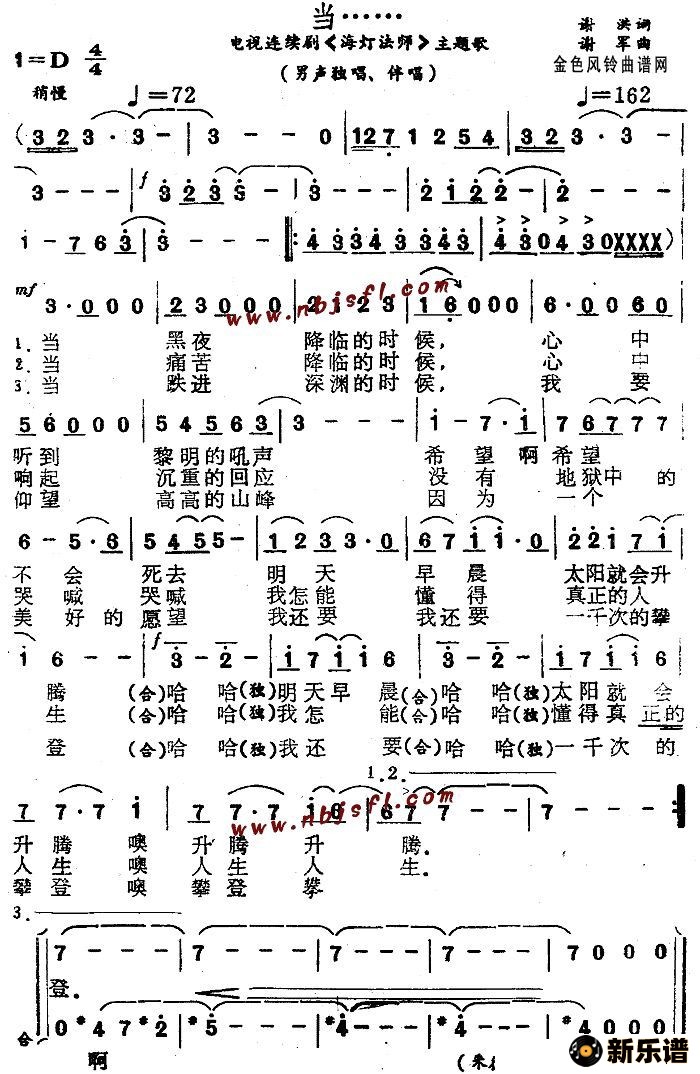 当……
电视连续剧《海灯法师》主题歌
谢 洪词
谢 军曲
1=D 4/4
(男声独唱、伴唱)
金色风铃曲谱网
稍慢 ♩=72 ♩=162
(3 2 3 · 3 - | 3 - - 0 | 1 2 2 7 1 2 5 4 | 3 2 3 · 3 - |
3 - - - | f 3 2 3 3 - | 3 - - - | 2 1 2 2 - | 2 - - - |
1 - 7 6 3 | 3 - - - |: 4 3 3 4 3 3 4 3 | 4 3 0 4 3 0 X X X X )
mf
3 · 0 0 0 | 2 3 0 0 0 | 2 1 2 3 | 1 6 0 0 0 | 6 · 0 0 6 0 |
www.nbjsfl.com
1.当 黑夜 降临的时候, 心 中
2.当 痛苦 降临的时候, 心 中
3.当 跌进 深渊的时候, 我 要
5 6 0 0 0 | 5 4 5 6 3 | 3 - - - | 1 - 7 · 1 | 7 6 7 7 7 |
听到 黎明的吼声 希望啊希望
响起 沉重的回应 没有 地狱中的
仰望 高高的山峰 因为 一个
6 - 5 · 6 | 5 4 5 5 - | 1 2 3 3 · 0 | 6 7 1 1 · 0 | 2 2 1 7 1 |
不 会 死去 明天 早晨 太阳就会升
哭 喊 哭喊 我怎能 懂得 真正的人
美 好的愿望 我还要 我还要 一千次的攀
1 6 - - | f 3 - 2 - | 1 7 1 1 | 3 - 2 - | 1 7 1 1 6 |
腾 (合)哈 哈(独)明天早 晨(合)哈 哈(独)太阳就 会
生 (合)哈 哈(独)我怎 能(合)哈 哈(独)懂得真 正的
登 (合)哈 哈(独)我还 要(合)哈 哈(独)一千次的
1.2.
7 7 · 7 1 | 7 7 · 7 1 6 | 6 7 7 - - | 7 - - - :|
www.nbjsfl.com
升 腾 噢 升 腾 升 腾.
人 生 噢 人 生 人 生.
攀 登 噢 攀 登 攀
3.
7 - - - | 7 - - - | 7 - - - | 7 - - - | 7 0 0 0
登.
合 0 #4 7 #2 | #5 - - - | #4 - - - | #4 - - - | 0 0 0
啊
新乐谱